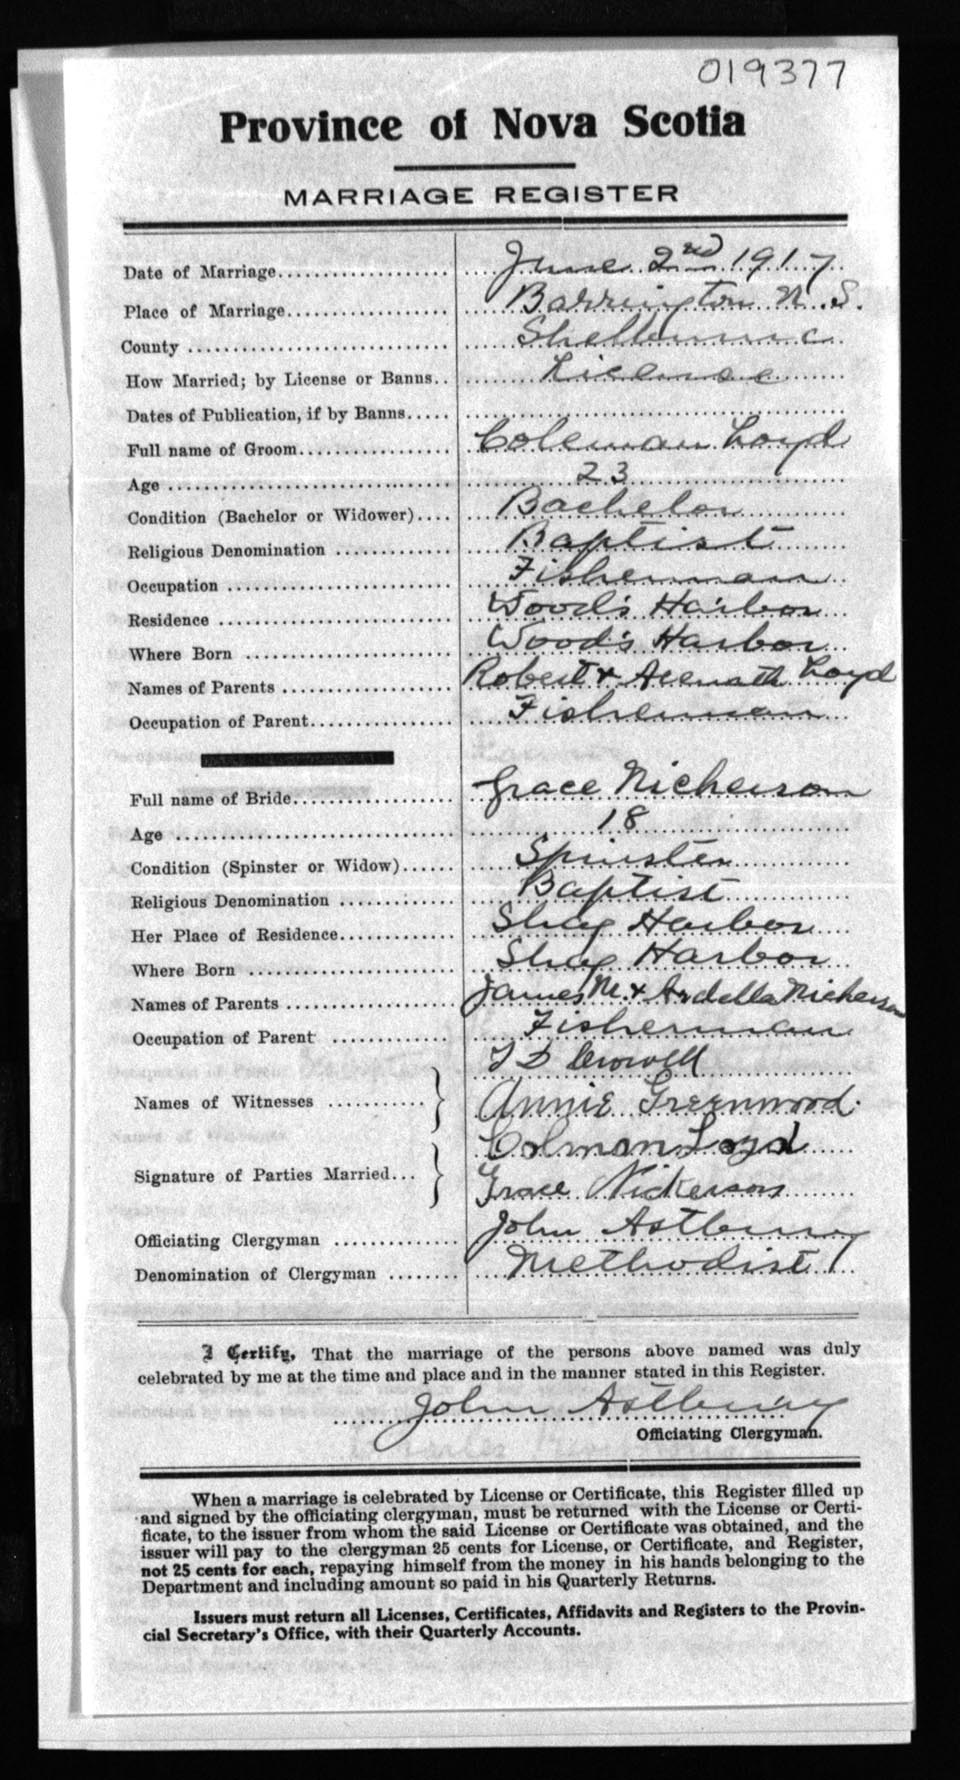 019377
Province of Nova Scotia
MARRIAGE REGISTER
Date of Marriage.................. June 2nd 1917
Place of Marriage................. Barrington N.S.
County ............................ Shelburne
How Married; by License or Banns.. License
Dates of Publication, if by Banns.....
Full name of Groom................ Coleman Loyd
Age ............................... 23
Condition (Bachelor or Widower).... Bachelor
Religious Denomination ............ Baptist
Occupation ........................ Fisherman
Residence ......................... Wood's Harbor
Where Born ........................ Wood's Harbor
Names of Parents .................. Robert & Loyd
Occupation of Parent............... Fisherman
Full name of Bride................. Grace Nickerson
Age ............................... 18
Condition (Spinster or Widow)...... Spinster
Religious Denomination ............ Baptist
Her Place of Residence............. Shag Harbor
Where Born ........................ Shag Harbor
Names of Parents .................. James M. & Ardella Nickerson
Occupation of Parent .............. Fisherman
T D Crowell
Names of Witnesses ........... } Annie Greenwood.
Colman Loyd
Signature of Parties Married... } Grace Nickerson
Officiating Clergyman ............. John Astbury
Denomination of Clergyman ........ Methodist
I Certify, That the marriage of the persons above named was duly
celebrated by me at the time and place and in the manner stated in this Register.
John Astbury
Officiating Clergyman.
When a marriage is celebrated by License or Certificate, this Register filled up
and signed by the officiating clergyman, must be returned with the License or Certi-
ficate, to the issuer from whom the said License or Certificate was obtained, and the
issuer will pay to the clergyman 25 cents for License, or Certificate, and Register,
not 25 cents for each, repaying himself from the money in his hands belonging to the
Department and including amount so paid in his Quarterly Returns.
Issuers must return all Licenses, Certificates, Affidavits and Registers to the Provin-
cial Secretary's Office, with their Quarterly Accounts.